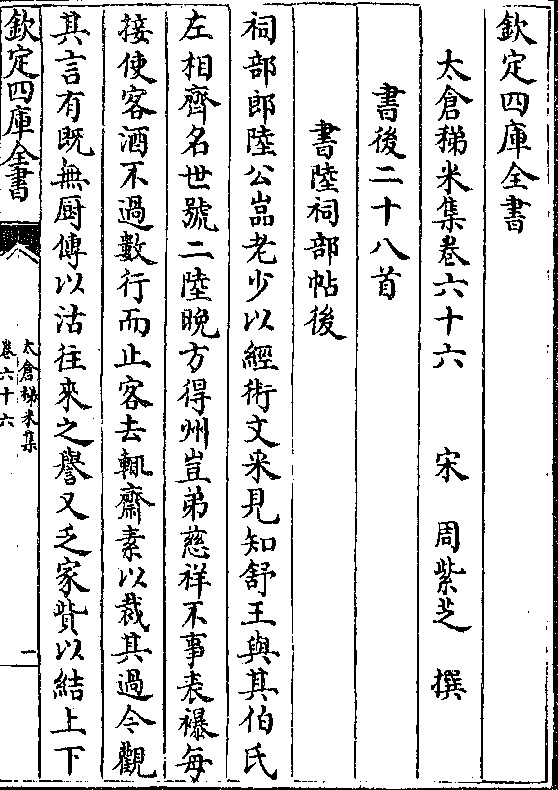 欽定四庫全書
太倉稊米集卷六十六　宋　周紫芝　撰
書後二十八首
書陸祠部帖後
祠部郎陸公嵓老少以經術文采見知舒王與其伯氏
左相齊名世號二陸晚方得州豈弟慈祥不事表襮每
接使客酒不過數行而止客去輒齋素以裁其過今觀
其言有既無厨傳以沽往來之譽又乏家貲以結上下
欽定四庫全書
太倉稊米集
卷六十六
一